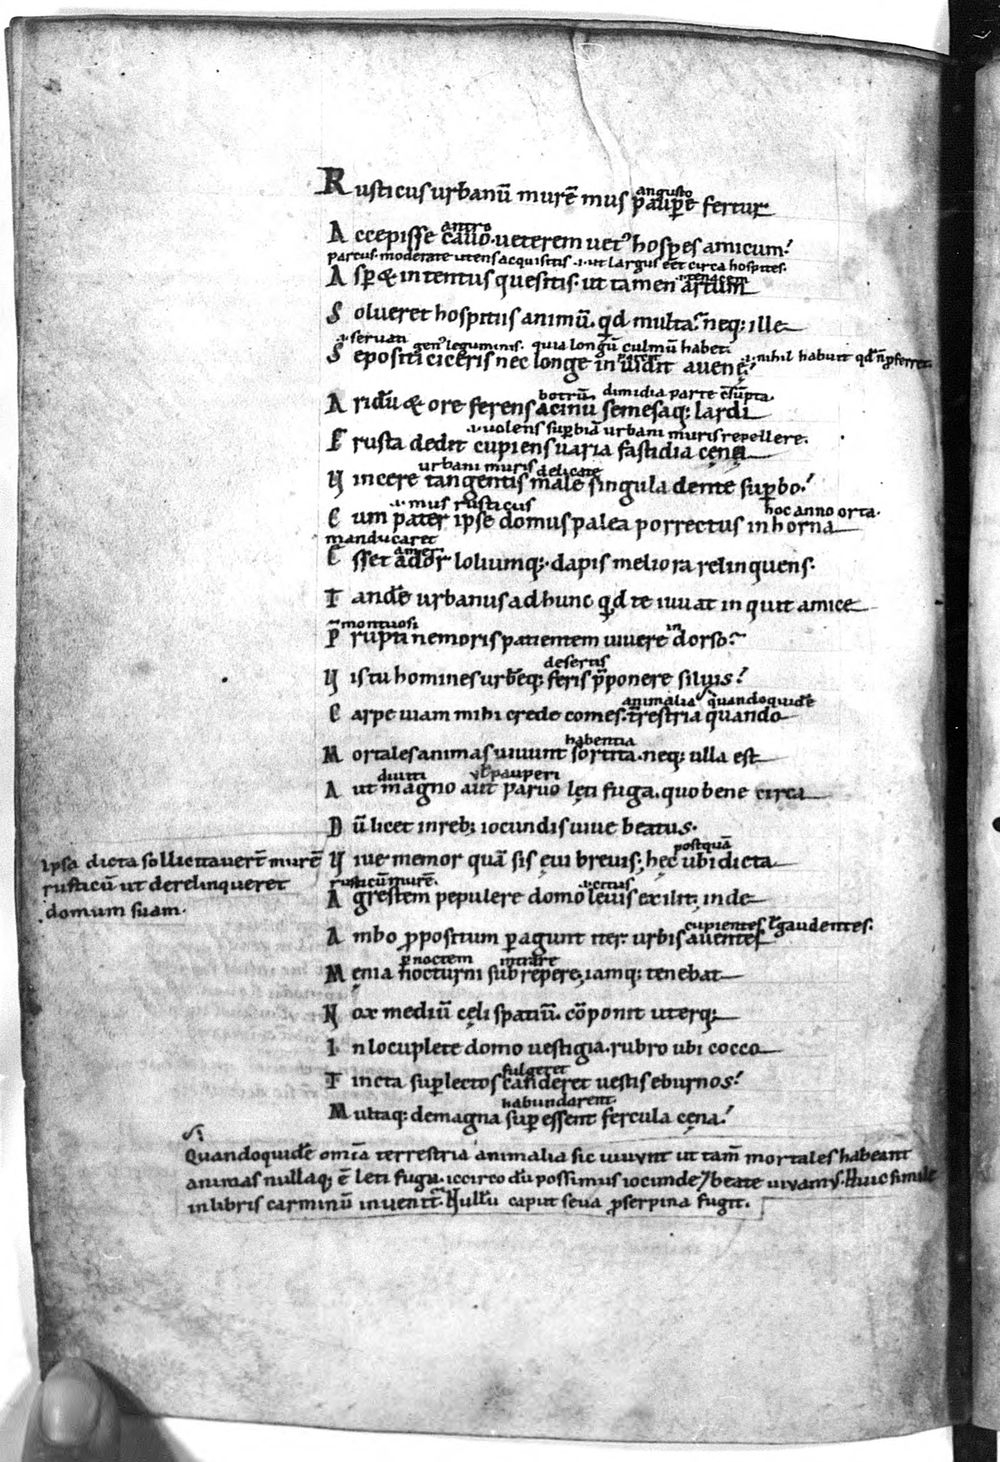 angusto
Rusticus urbanū murē mus paup̲e fertur
antro
Accepisse cauo. ueterem uet' hospes amicum.
parcus. moderate utens acquisitis .i. ut largus e̅et circa hospites.
tenacem
Asp & intentus quesitis. ut tamen artum
Solueret hospitiis animū. qd multa. neq; ille
.i. seruati gen' leguminis. quia longū culmū habet. .i. nihil habuit qd n̄ p̲ferret.
Sepositi ciceris nec longe inuidit auenę.
botrū. dimidia parte c̄sūpta.
Aridū & ore ferens acinū semesaq; lardi
.i. uolens sup̲biā urbani muris repellere.
Frusta dedit cupiens uaria fastidia cęna
urbani muris delicate
Vincere tangentis male singula dente sup̲bo.
.i. mus rusticus hoc anno orta.
Cum pater ipse domus palea porrectus in horna
manducaret
Esset ador loliumq;. dapis meliora relinquens.
Tandē urbanus ad hunc qd te iuuat inquit amice
mōntuosi in
Prupti nemoris patientem uiuere dorso.
desertis
Vis tu homines urbēq; feris p̄ponere siluis?
animalia quandoquidē
Carpe uiam mihi crede comes. t̄restria quando
habentia
Mortales animas uiuunt sortita. neq; ulla est
diuiti ł pauperi
Aut magno aut paruo lęti fuga. quo bene circa
Dū licet in reb; iocundis uiue beatus.
postquā
Viue memor quā sis ęui breuis; hęc ubi dicta
Ipsa dicta sollicitauert̄ murē
rusticū ut derelinqueret
domum suam.
rusticū murē. uelius
Agrestem pepulere domo leuis exilit; inde
cupientes ł gaudentes.
Ambo p̲positum p̲agunt iter. urbis auentes
p̲ noctem intrare
Męnia nocturni subrepere; iamq; tenebat
Nox mediū cęli spatiū. cōponit uterq;
In locuplete domo uestigia. rubro ubi cocco
fulgeret
Tincta sup̲ lectos canderet uestis eburnos.
habundarent.
Multaq; de magna sup̲essent fercula cęna.
Quandoquidē omīa terrestria animalia sic uiuunt ut tam̄ mortales habeant
animas nullaq; ē leti fuga. iccirco dū possimus iocunde 7 beate uiuamus. Huic simile
in libris carminū inuenit̄. Nullū caput seua p̲serpina fugit.